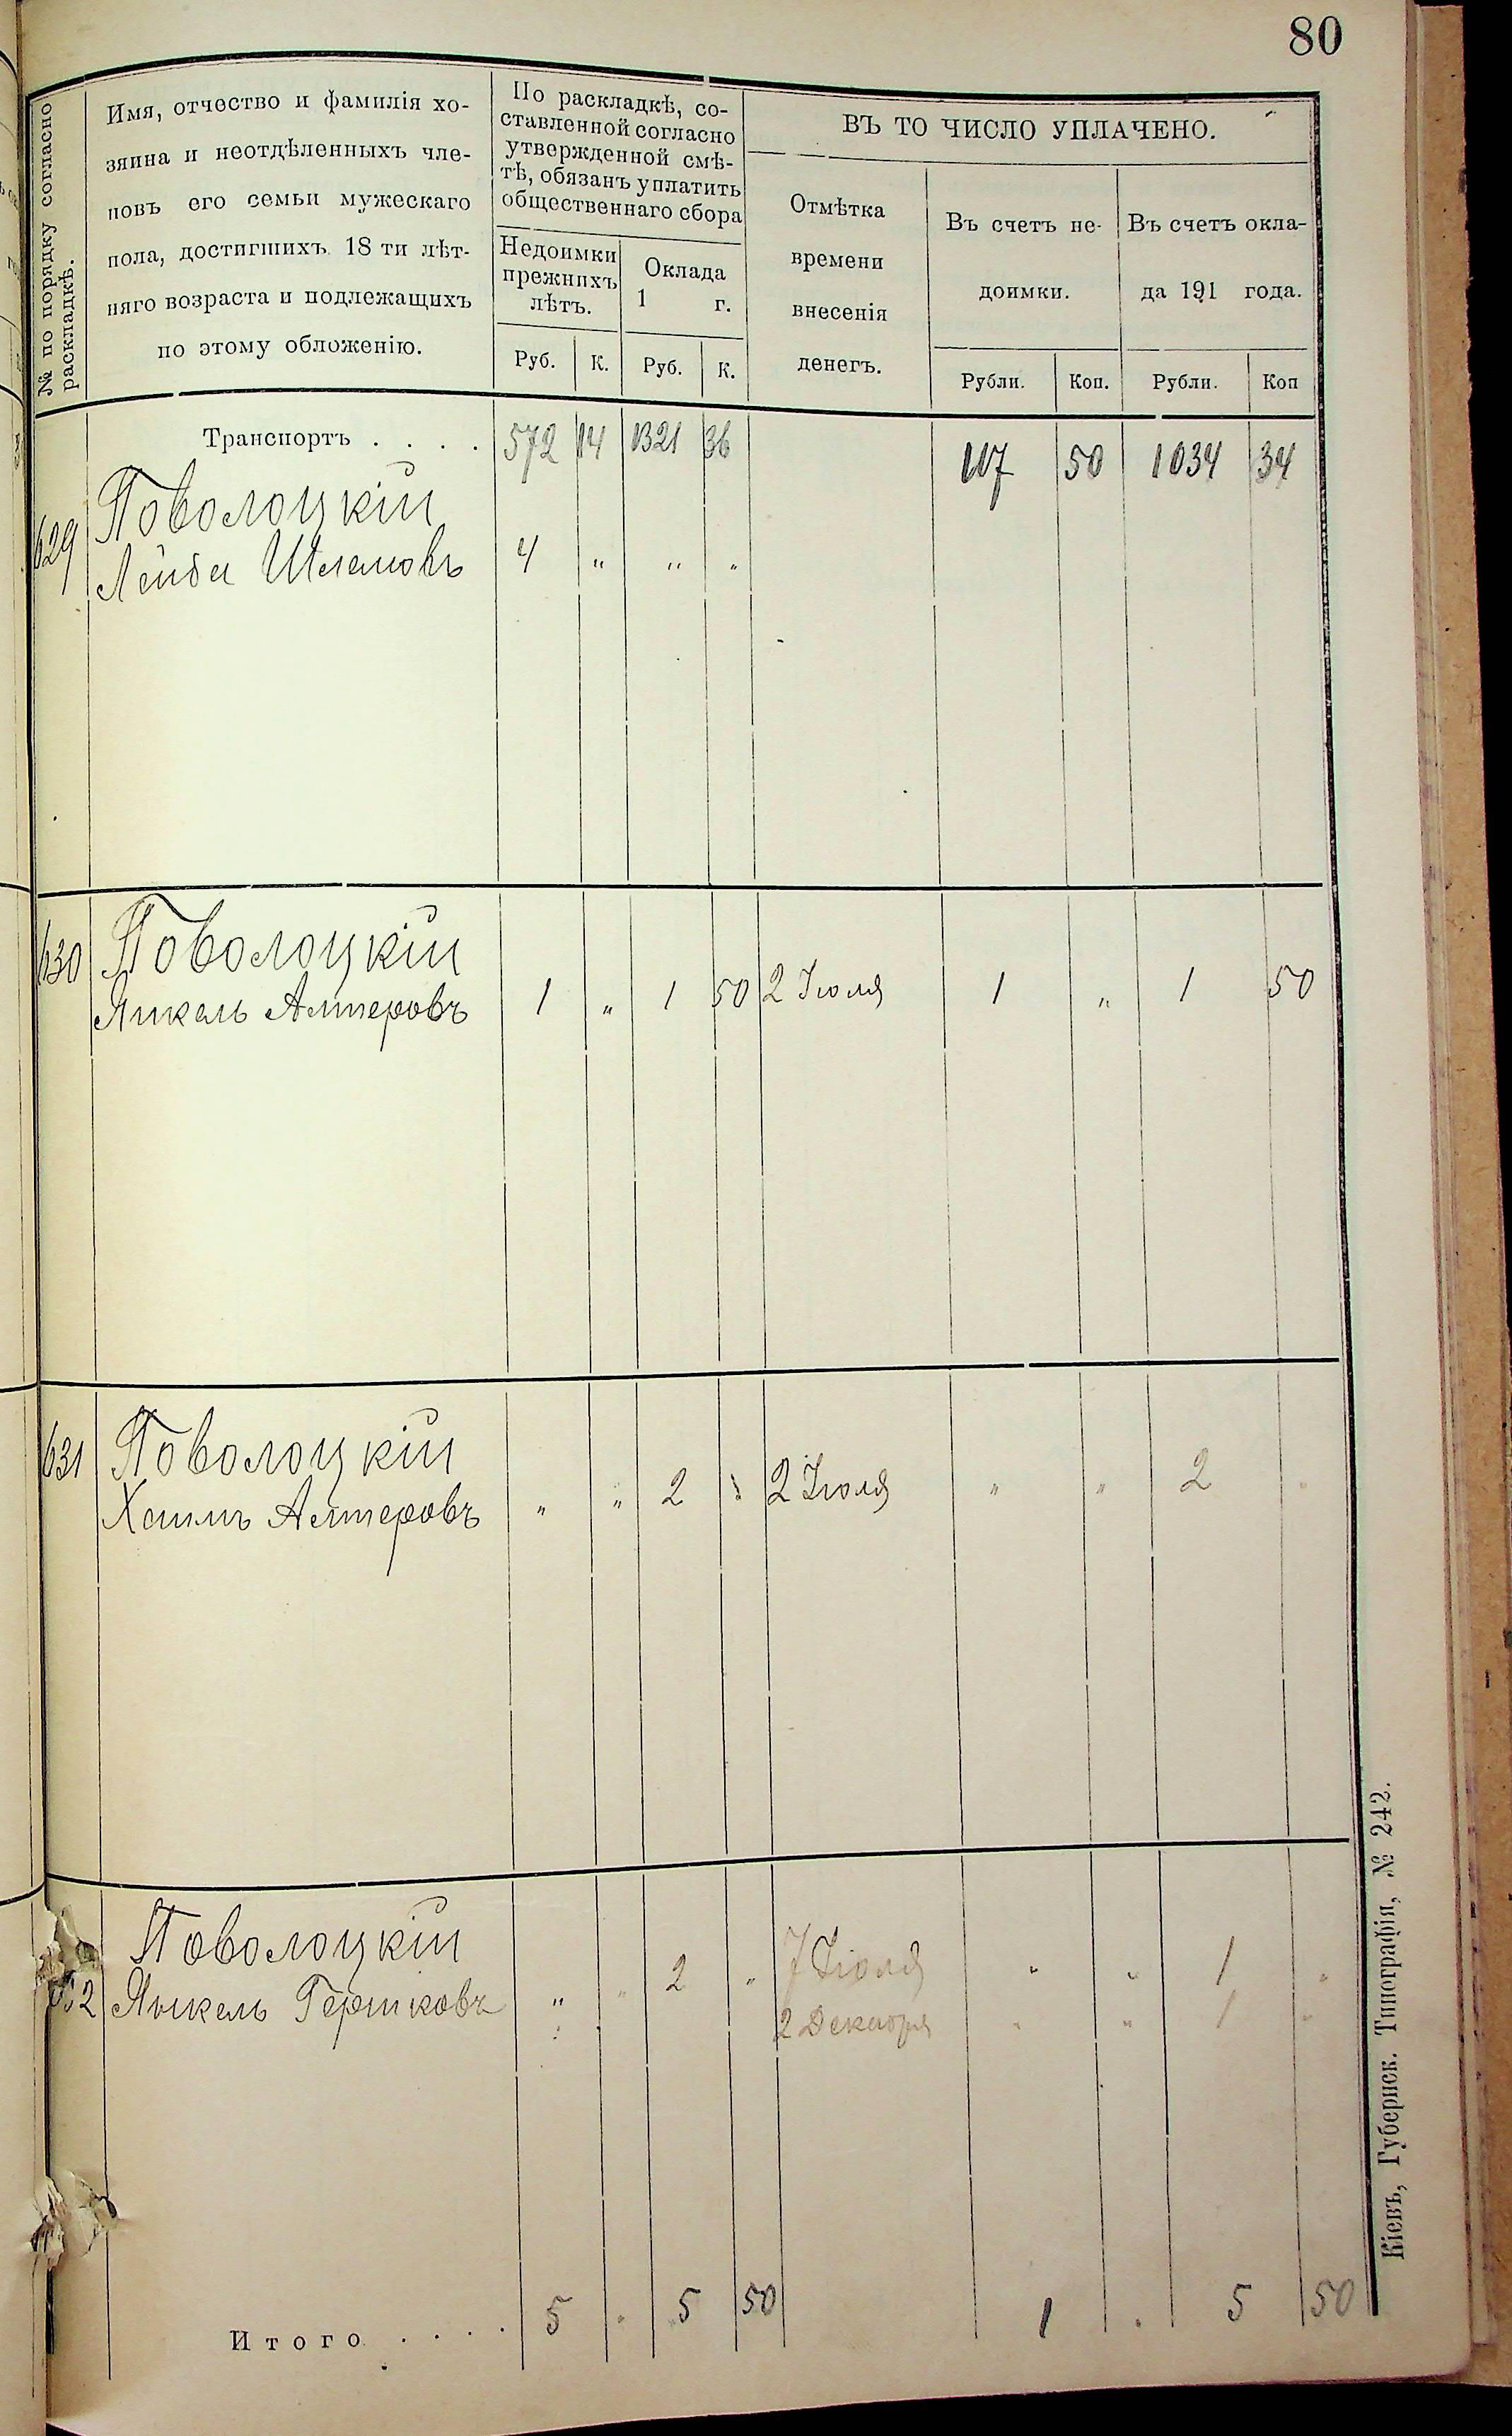 80
№ по порядку согласно
раскладкѣ.
Имя, отчество и фамилія хо-
зяина и неотдѣленныхъ чле-
новъ его семьи мужескаго
пола, достигшихъ 18 ти лѣт-
няго возраста и подлежащихъ
по этому обложенію.
По раскладкѣ, со-
ставленной согласно
утвержденной смѣ-
тѣ, обязанъ уплатить
общественнаго сбора
Недоимки
прежнихъ
лѣтъ.
Оклада
1 г.
Руб. К. Руб. К.
ВЪ ТО ЧИСЛО УПЛАЧЕНО.
Отмѣтка
времени
внесенія
денегъ.
Въ счетъ не-
доимки.
Въ счетъ окла-
да 191 года.
Рубли. Коп. Рубли. Коп
Транспортъ . . . . 572 14 1321 36 117 50 1034 34
Поволоцкій
629 Лейба Шлемовъ 4 " " "
Поволоцкій
630 Янкель Алтеровъ 1 " 1 50 2 Іюля 1 " 1 50
Поволоцкій
631 Хаимъ Алтеровъ " " 2 " 2 Іюля " " 2 "
Поволоцкій
632 Янкель Гершковъ " " 2 " 7 Іюля " " 1 "
2 Декабря " " 1 "
Итого . . . . 5 " 5 50 1 " 5 50
Кіевъ, Губернск. Типографія, № 242.